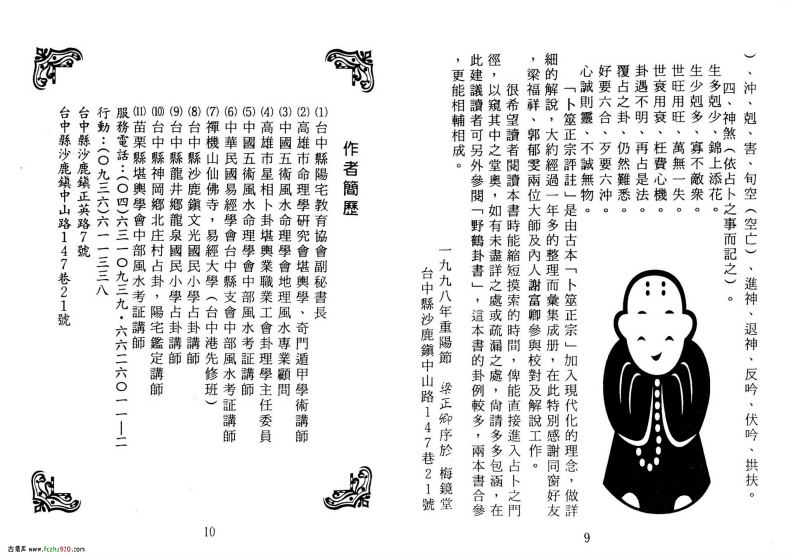 )、沖、剋、害、旬空(空亡)、進神、退神、反吟、伏吟、拱扶。
四、神煞(依占卜之事而記之)。
生多剋少、錦上添花。
生少剋多、寡不敵衆。
世旺用旺、萬無一失。
世衰用衰、枉費心機。
卦遇不明、再占是法。
覆占之卦、仍然難悉。
好要六合、歹要六沖。
心誠則靈、不誠無物。
「卜筮正宗評註」是由古本「卜筮正宗」加入現代化的理念,做詳
細的解說,大約經過一年多的整理而彙集成册,在此特別感謝同窗好友
,梁福祥、郭郁雯兩位大師及內人謝富卿參與校對及解說工作。
很希望讀者閱讀本書時能縮短摸索的時間,俾能直接進入占卜之門
徑,以窺其中之堂奧,如有未盡詳之處或疏漏之處,尙請多多包涵,在
此建議讀者可另外參閱「野鶴卦書」,這本書的卦例較多,兩本書合參
,更能相輔相成。
一九九八年重陽節 梁正卿序於 梅鏡堂
台中縣沙鹿鎮中山路147巷21號
9
作者簡歷
(1)台中縣陽宅教育協會副秘書長
(2)高雄市命理學研究會堪輿學、奇門遁甲學術講師
(3)中國五術風水命理學會地理風水專業顧問
(4)高雄市星相卜卦堪輿業職業工會卦理學主任委員
(5)中國五術風水命理學會中部風水考証講師
(6)中華民國易經學會台中縣支會中部風水考証講師
(7)禪機山仙佛寺,易經大學(台中港先修班)
(8)台中縣沙鹿鎮文光國民小學占卦講師
(9)台中縣龍井鄉龍泉國民小學占卦講師
(10)台中縣神岡鄉北庄村占卦,陽宅鑑定講師
(11)苗栗縣堪輿學會中部風水考証講師
服務電話:(〇四)六三一〇九三九.六六二六〇一一—二
行動:(〇九三六)六一一三三八
台中縣沙鹿鎮正英路7號
台中縣沙鹿鎮中山路147巷21號
10
古易库 www.fczhu920.com